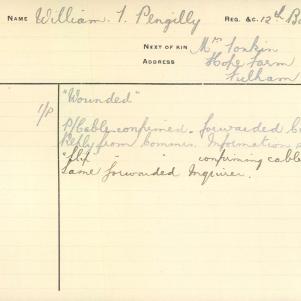 NAME William. T. Pengilly REG. &C. 12th Ba
NEXT OF KIN Mrs Tonkin
ADDRESS Hope Farm
Fulham
1/P "Wounded"
P/Cable confirmed. Forwarded
Reply from Commrs. Information
"slip " - " confirming cable
Same forwarded Inquirer.